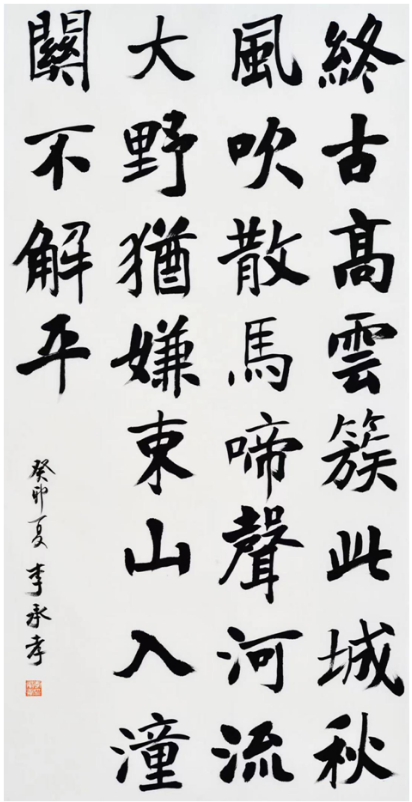 終古高雲簇此城秋
風吹散馬啼聲河流
大野猶嫌束山入潼
關不解平
癸卯夏 李承孝